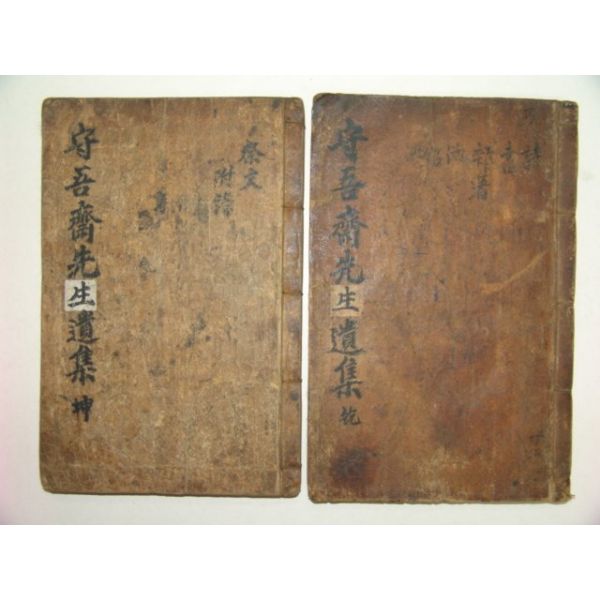 詩
書
守吾齋先生遺集 乾
祭文
附錄
守吾齋先生遺集 坤